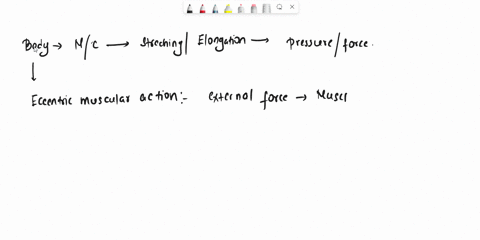 Body → M/C → Streching/ Elongation → Pressure/force.
↓
Eccentric muscular action:- external force → Muscl